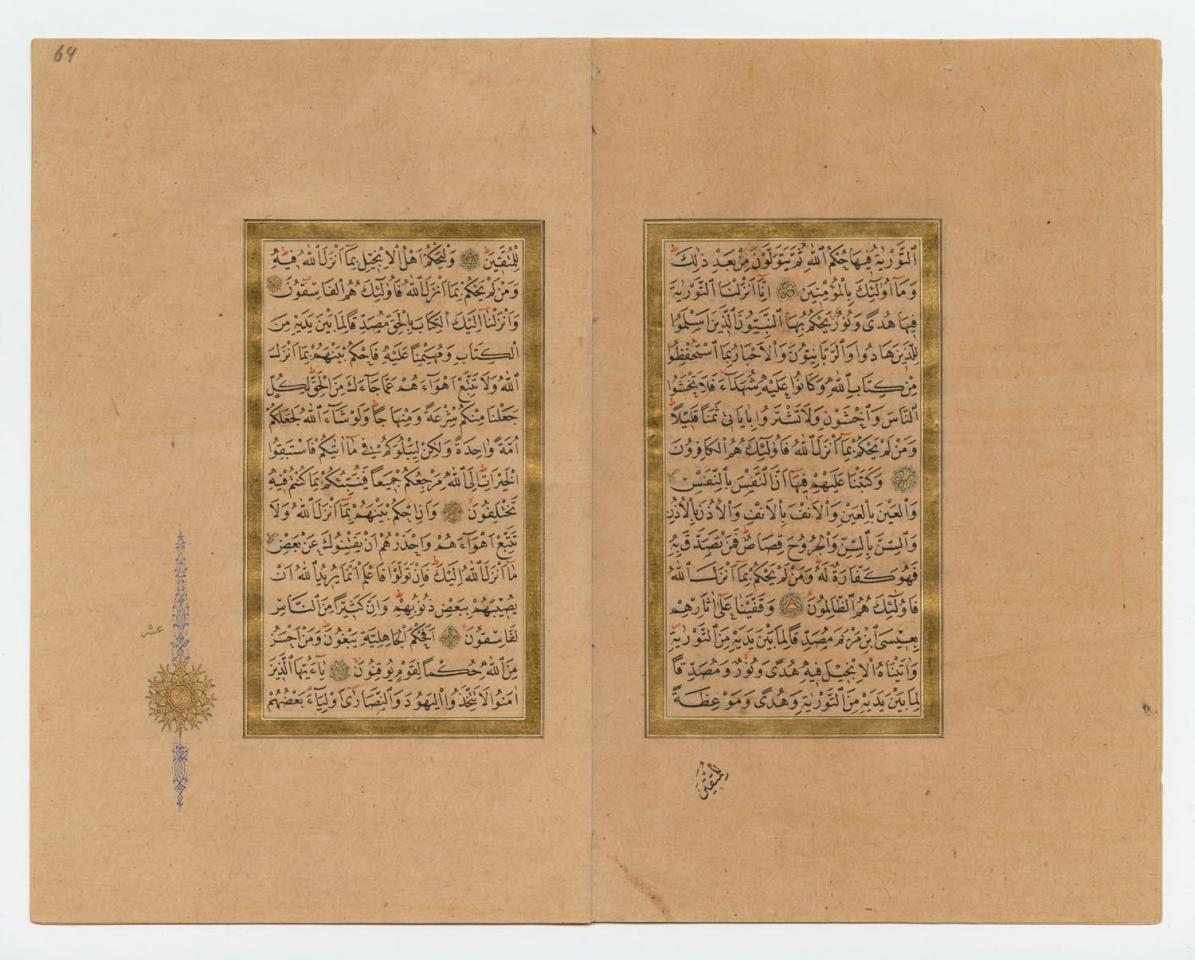 التَّوْرٰيةُ فِيهَا حُكْمُ اللّٰهِ ثُمَّ يَتَوَلَّوْنَ مِنْ بَعْدِ ذٰلِكَ
وَمَا اُولٰئِكَ بِالْمُؤْمِنِينَ اِنَّا اَنْزَلْنَا التَّوْرٰيةَ
فِيهَا هُدًى وَنُورٌ يَحْكُمُ بِهَا النَّبِيُّونَ الَّذِينَ اَسْلَمُوا
لِلَّذِينَ هَادُوا وَالرَّبَّانِيُّونَ وَالْاَحْبَارُ بِمَا اسْتُحْفِظُوا
مِنْ كِتَابِ اللّٰهِ وَكَانُوا عَلَيْهِ شُهَدَاءَ فَلَا تَخْشَوُا
النَّاسَ وَاخْشَوْنِ وَلَا تَشْتَرُوا بِاٰيَاتِى ثَمَنًا قَلِيلًا
وَمَنْ لَمْ يَحْكُمْ بِمَا اَنْزَلَ اللّٰهُ فَاُولٰئِكَ هُمُ الْكَافِرُونَ
وَكَتَبْنَا عَلَيْهِمْ فِيهَا اَنَّ النَّفْسَ بِالنَّفْسِ
وَالْعَيْنَ بِالْعَيْنِ وَالْاَنْفَ بِالْاَنْفِ وَالْاُذُنَ بِالْاُذُنِ
وَالسِّنَّ بِالسِّنِّ وَالْجُرُوحَ قِصَاصٌ فَمَنْ تَصَدَّقَ بِهِ
فَهُوَ كَفَّارَةٌ لَهُ وَمَنْ لَمْ يَحْكُمْ بِمَا اَنْزَلَ اللّٰهُ
فَاُولٰئِكَ هُمُ الظَّالِمُونَ وَقَفَّيْنَا عَلٰى اٰثَارِهِمْ
بِعِيسَى ابْنِ مَرْيَمَ مُصَدِّقًا لِمَا بَيْنَ يَدَيْهِ مِنَ التَّوْرٰيةِ
وَاٰتَيْنَاهُ الْاِنْجِيلَ فِيهِ هُدًى وَنُورٌ وَمُصَدِّقًا
لِمَا بَيْنَ يَدَيْهِ مِنَ التَّوْرٰيةِ وَهُدًى وَمَوْعِظَةً
لِلْمُتَّقِينَ
لِلْمُتَّقِينَ وَلْيَحْكُمْ اَهْلُ الْاِنْجِيلِ بِمَا اَنْزَلَ اللّٰهُ فِيهِ
وَمَنْ لَمْ يَحْكُمْ بِمَا اَنْزَلَ اللّٰهُ فَاُولٰئِكَ هُمُ الْفَاسِقُونَ
وَاَنْزَلْنَا اِلَيْكَ الْكِتَابَ بِالْحَقِّ مُصَدِّقًا لِمَا بَيْنَ يَدَيْهِ مِنَ
الْكِتَابِ وَمُهَيْمِنًا عَلَيْهِ فَاحْكُمْ بَيْنَهُمْ بِمَا اَنْزَلَ
اللّٰهُ وَلَا تَتَّبِعْ اَهْوَاءَهُمْ عَمَّا جَاءَكَ مِنَ الْحَقِّ لِكُلٍّ
جَعَلْنَا مِنْكُمْ شِرْعَةً وَمِنْهَاجًا وَلَوْ شَاءَ اللّٰهُ لَجَعَلَكُمْ
اُمَّةً وَاحِدَةً وَلٰكِنْ لِيَبْلُوَكُمْ فِى مَا اٰتٰيكُمْ فَاسْتَبِقُوا
الْخَيْرَاتِ اِلَى اللّٰهِ مَرْجِعُكُمْ جَمِيعًا فَيُنَبِّئُكُمْ بِمَا كُنْتُمْ فِيهِ
تَخْتَلِفُونَ وَاَنِ احْكُمْ بَيْنَهُمْ بِمَا اَنْزَلَ اللّٰهُ وَلَا
تَتَّبِعْ اَهْوَاءَهُمْ وَاحْذَرْهُمْ اَنْ يَفْتِنُوكَ عَنْ بَعْضِ
مَا اَنْزَلَ اللّٰهُ اِلَيْكَ فَاِنْ تَوَلَّوْا فَاعْلَمْ اَنَّمَا يُرِيدُ اللّٰهُ اَنْ
يُصِيبَهُمْ بِبَعْضِ ذُنُوبِهِمْ وَاِنَّ كَثِيرًا مِنَ النَّاسِ
لَفَاسِقُونَ اَفَحُكْمَ الْجَاهِلِيَّةِ يَبْغُونَ وَمَنْ اَحْسَنُ
مِنَ اللّٰهِ حُكْمًا لِقَوْمٍ يُوقِنُونَ يَا اَيُّهَا الَّذِينَ
اٰمَنُوا لَا تَتَّخِذُوا الْيَهُودَ وَالنَّصَارٰى اَوْلِيَاءَ بَعْضُهُمْ
عشر
64